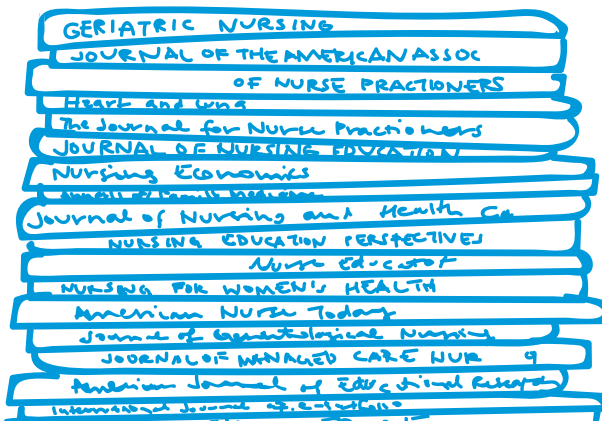 GERIATRIC NURSING
JOURNAL OF THE AMERICAN ASSOC
OF NURSE PRACTIONERS
Heart and Lung
The Journal for Nurse Practioners
JOURNAL OF NURSING EDUCATION
Nursing Economics
Annals of Family Medicine
Journal of Nursing and Health Ca
NURSING EDUCATION PERSPECTIVES
Nurse Educator
NURSING FOR WOMEN'S HEALTH
American Nurse Today
Journal of Gerontological Nursing
JOURNAL OF MANAGED CARE NUR g
American Journal of Educational Research
International Journal of